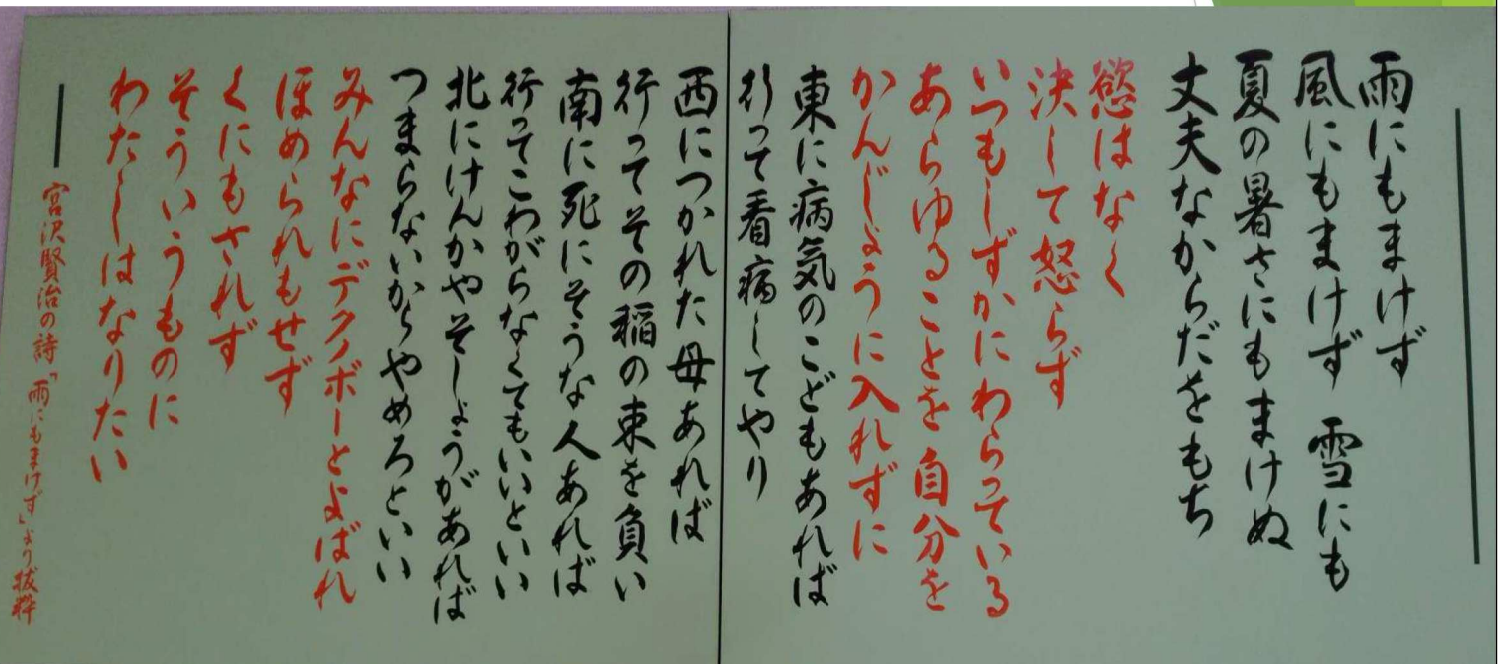 雨にもまけず
風にもまけず 雪にも
夏の暑さにもまけぬ
丈夫なからだをもち
慾はなく
決して怒らず
いつもしずかにわらっている
あらゆることを自分を
かんじょうに入れずに
東に病気のこどもあれば
行って看病してやり
西につかれた母あれば
行ってその稲の束を負い
南に死にそうな人あれば
行ってこわがらなくてもいいといい
北にけんかやそしょうがあれば
つまらないからやめろといい
みんなにデクノボーとよばれ
ほめられもせず
くにもされず
そういうものに
わたしはなりたい
宮沢賢治の詩「雨にもまけず」より抜粋